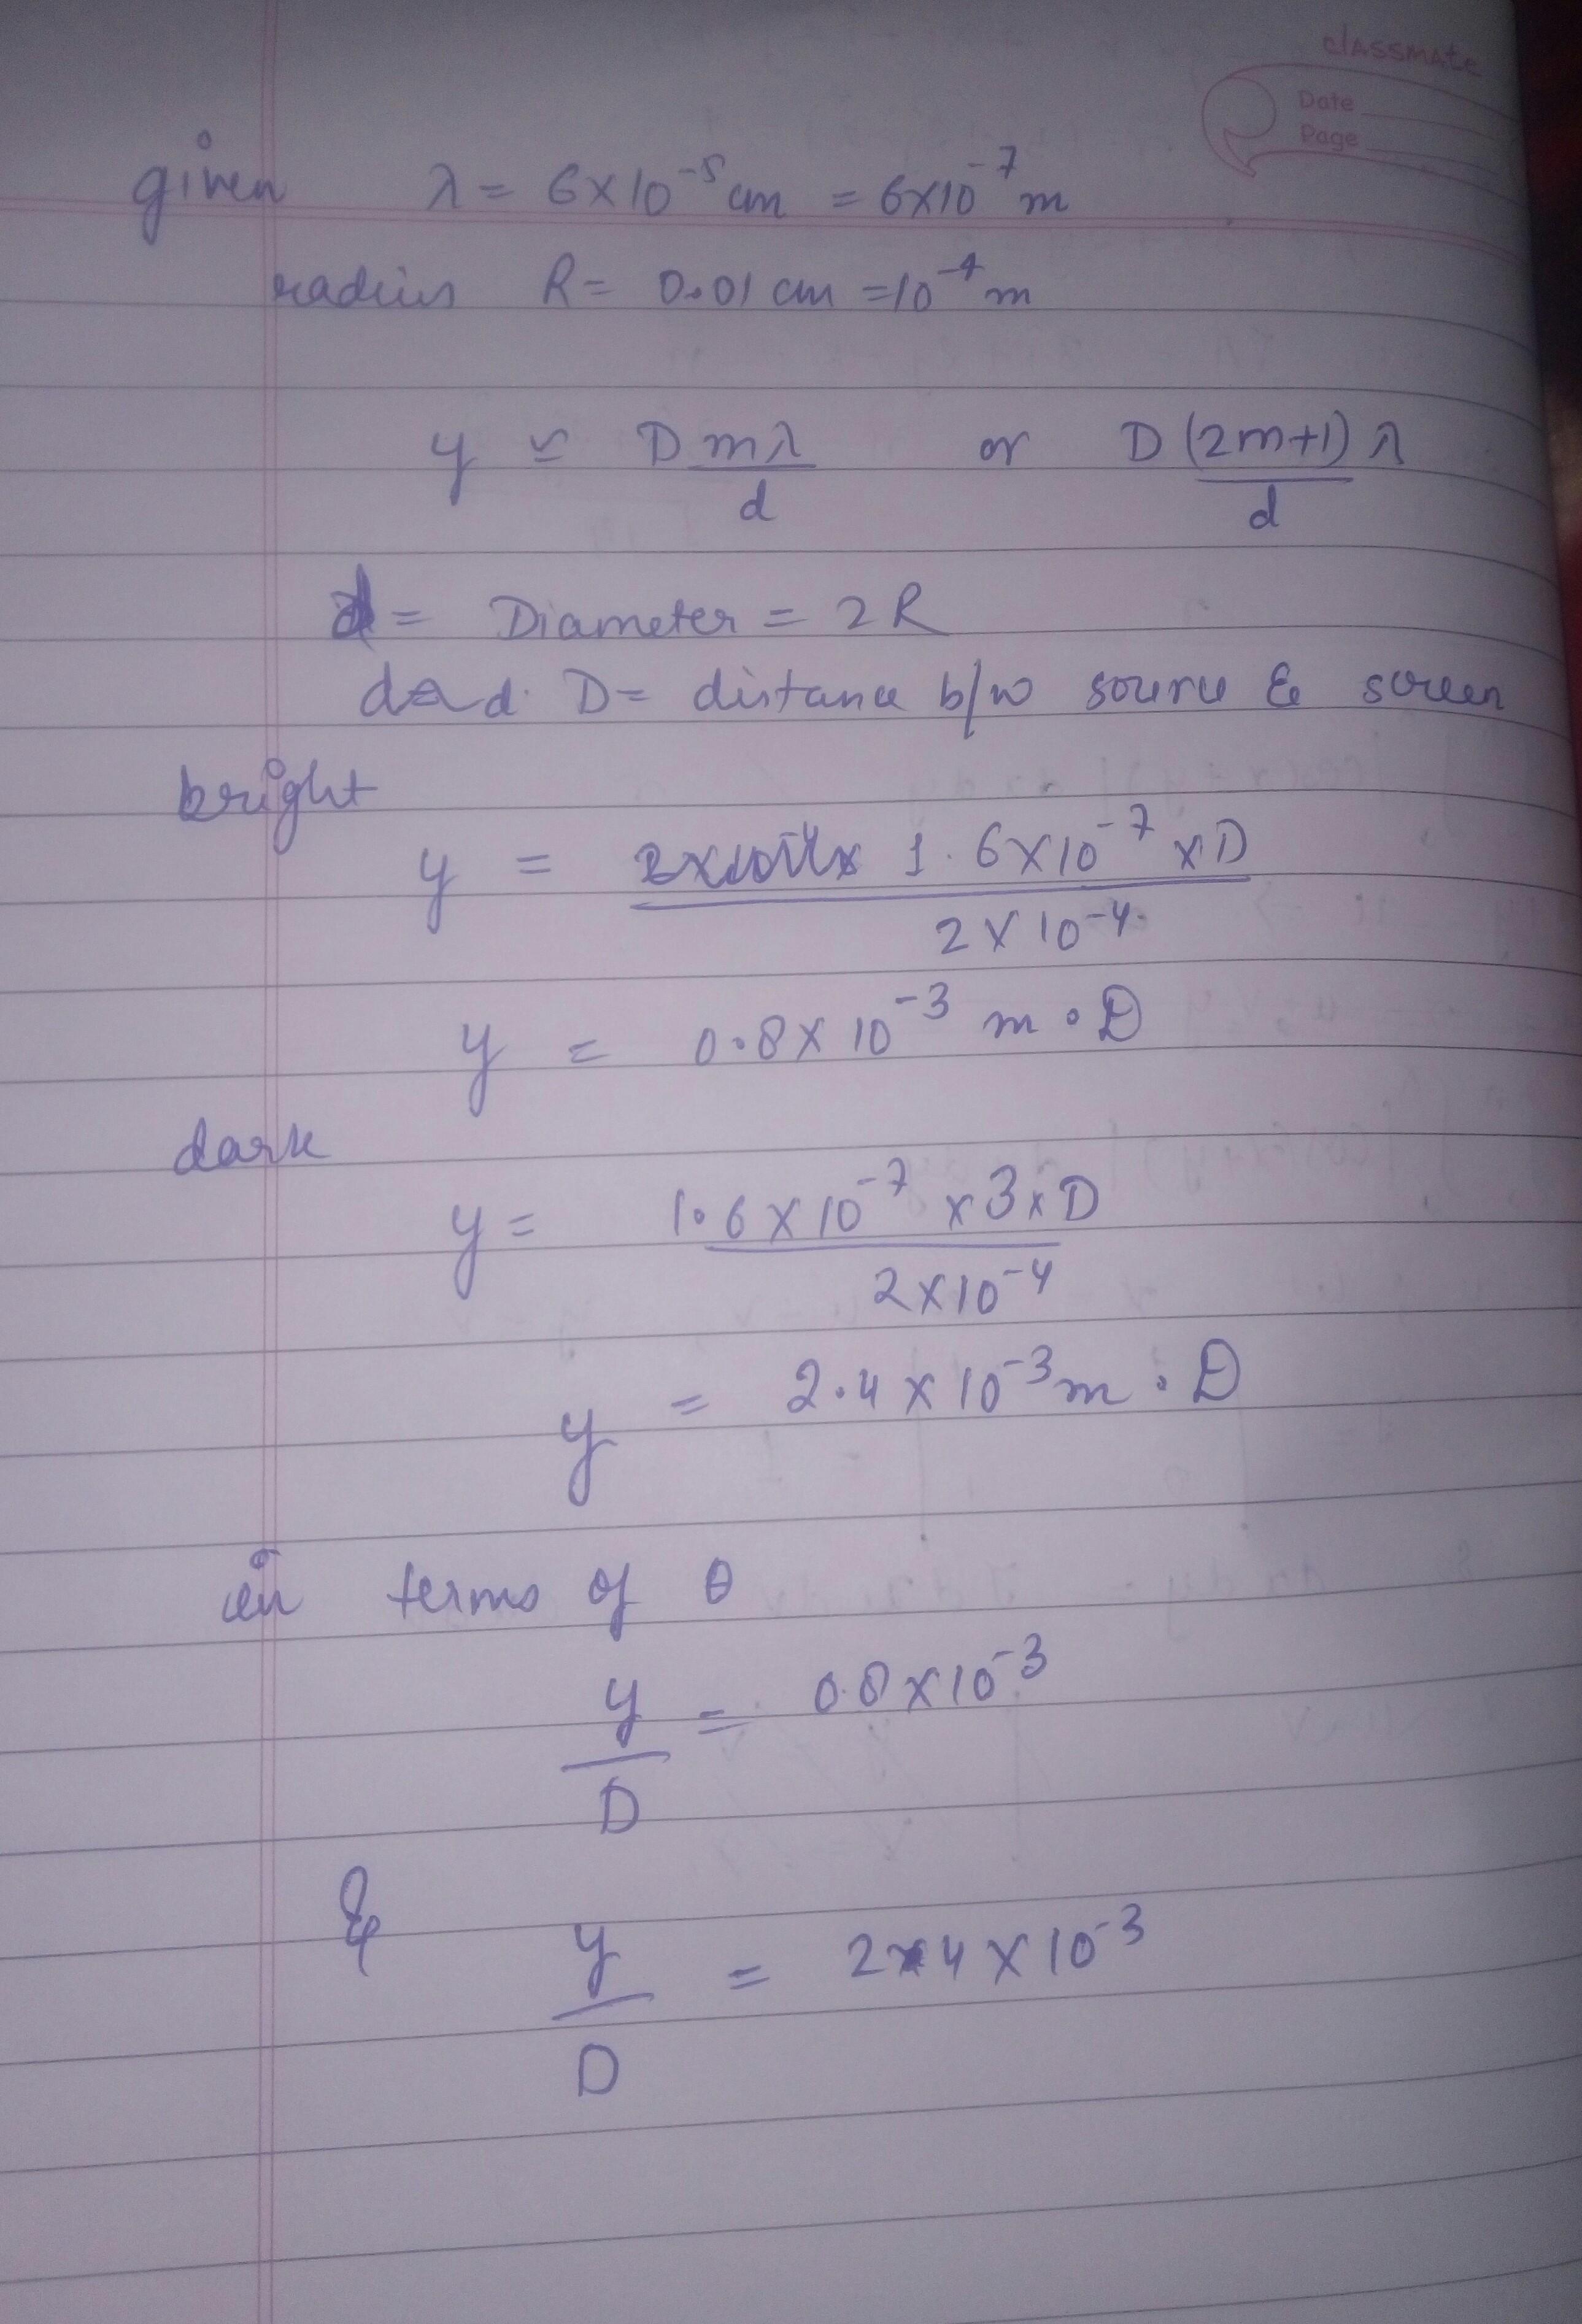 classmate
Date
Page
given λ = 6×10⁻⁵ cm = 6×10⁻⁷ m
radius R = 0.01 cm = 10⁻⁴ m
y ≃ D mλ/d or D (2m+1) λ/d
d = Diameter = 2R
D = distance b/w source & screen
bright
y = 1.6×10⁻⁷ × D / 2×10⁻⁴
y = 0.8×10⁻³ m · D
dark
y = 1.6×10⁻⁷ × 3 × D / 2×10⁻⁴
y = 2.4×10⁻³ m · D
in terms of θ
y/D = 0.8×10⁻³
& y/D = 2.4×10⁻³